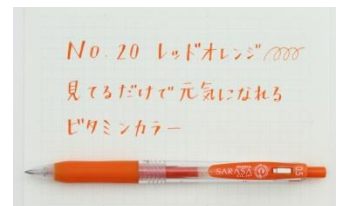 No.20 レッドオレンジ
見てるだけで元気になれる
ビタミンカラー
SARASA 0.5